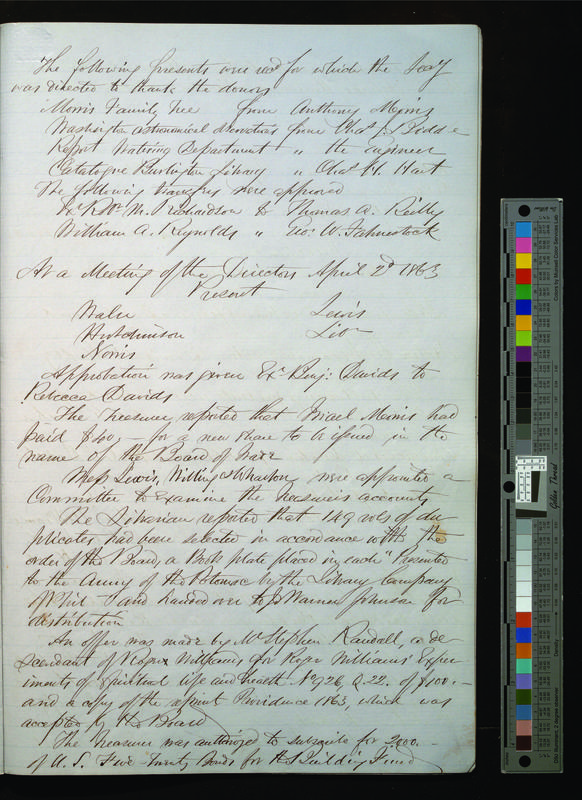 The following presents were recd for which the Secy
was directed to thank the donors
Morris Family Tree from Anthony Morris
Washington Astronomical observations from Chas
Report Watering Department " the Engineer
Catalogue Burlington Library " Chas H. Hart
The following transfers were approved
Exr Richardson to Thomas A. Reilly
William A. Reynolds " Geo: W. Fahnestock
At a Meeting of the Directors April 2d 1863
Present
Waln Lewis
Hutchinson Libn
Norris
Approbation was given Exr Benj: Davids to
Rebecca Davids
The Treasurer reported that Israel Morris had
paid $40,– for a new share to be issued in the
name of the Board of Trade
Mess Lewis, Willing & Wharton were appointed a
Committee to Examine the Treasurer's accounts
The Librarian reported that 149 vols of du
plicates had been selected in accordance with the
order of the Board, a Book plate placed in each "Presented
to the Army of the Potomac by the Library Company
of Phila" and handed over to Warner Johnson for
distribution
An offer was made by Mr Stephen Randall, a de
scendant of Roger Williams, for Roger Williams' Exper
iments of Spiritual life and health No 926, Q. 22. of $100.–
and a copy of the reprint Providence 1863, which was
accepted by the Board
The Treasurer was authorized to subscribe for 2000.–
of U. S. Five-Twenty Bonds for the Building Fund